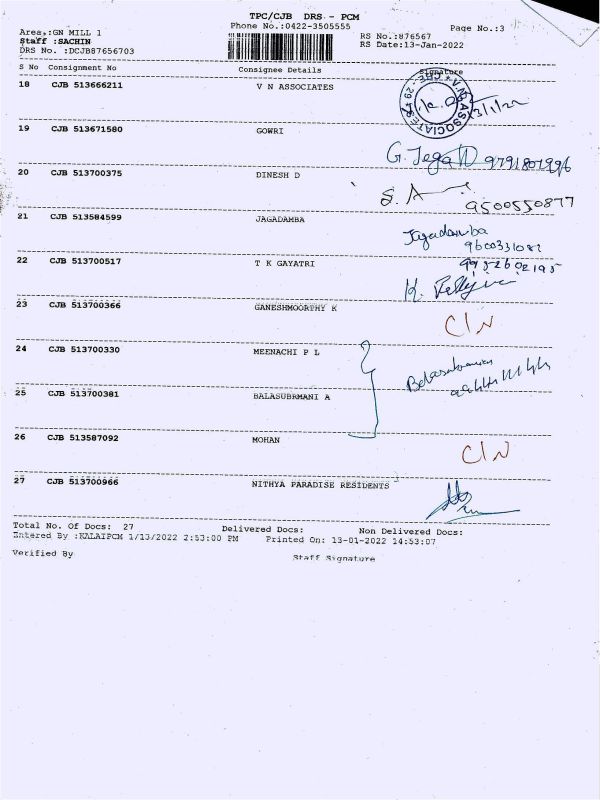 TPC/CJB DRS - PCM
Phone No.:0422-3505555
Page No.:3
Area,:GN MILL 1
RS No.:876567
Staff :SACHIN
RS Date:13-Jan-2022
DRS No. :DCJB87656703
S No Consignment No Consignee Details Signature
18 CJB 513666211 V N ASSOCIATES
19 CJB 513671580 GOWRI
G. Jega 9791801996
20 CJB 513700375 DINESH D
S. A
9500550877
21 CJB 513584599 JAGADAMBA
Jagadamba
22 CJB 513700517 T K GAYATRI
9952602195
K.
23 CJB 513700366 GANESHMOORTHY K
C/N
24 CJB 513700330 MEENACHI P L
25 CJB 513700381 BALASUBRMANI A
26 CJB 513587092 MOHAN
C/N
27 CJB 513700966 NITHYA PARADISE RESIDENTS
Total No. Of Docs: 27 Delivered Docs: Non Delivered Docs:
Entered By :KALAIPCM 1/13/2022 2:53:00 PM Printed On: 13-01-2022 14:53:07
Verified By Staff Signature